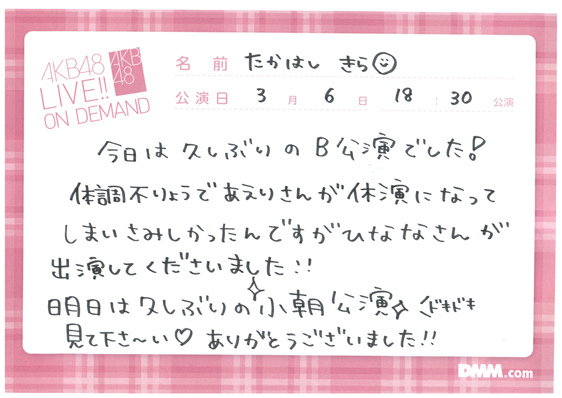 AKB48
LIVE!!
ON DEMAND
AKB
48
名前 たかはし きら
公演日 3月 6日 18:30 公演
今日は久しぶりのB公演でした!
体調不りょうであえりさんが休演になって
しまいさみしかったんですがひななさんが
出演してくださいました!!
明日は久しぶりの小朝公演 ドキドキ
見て下さ〜い♡ ありがとうございました!!
DMM.com